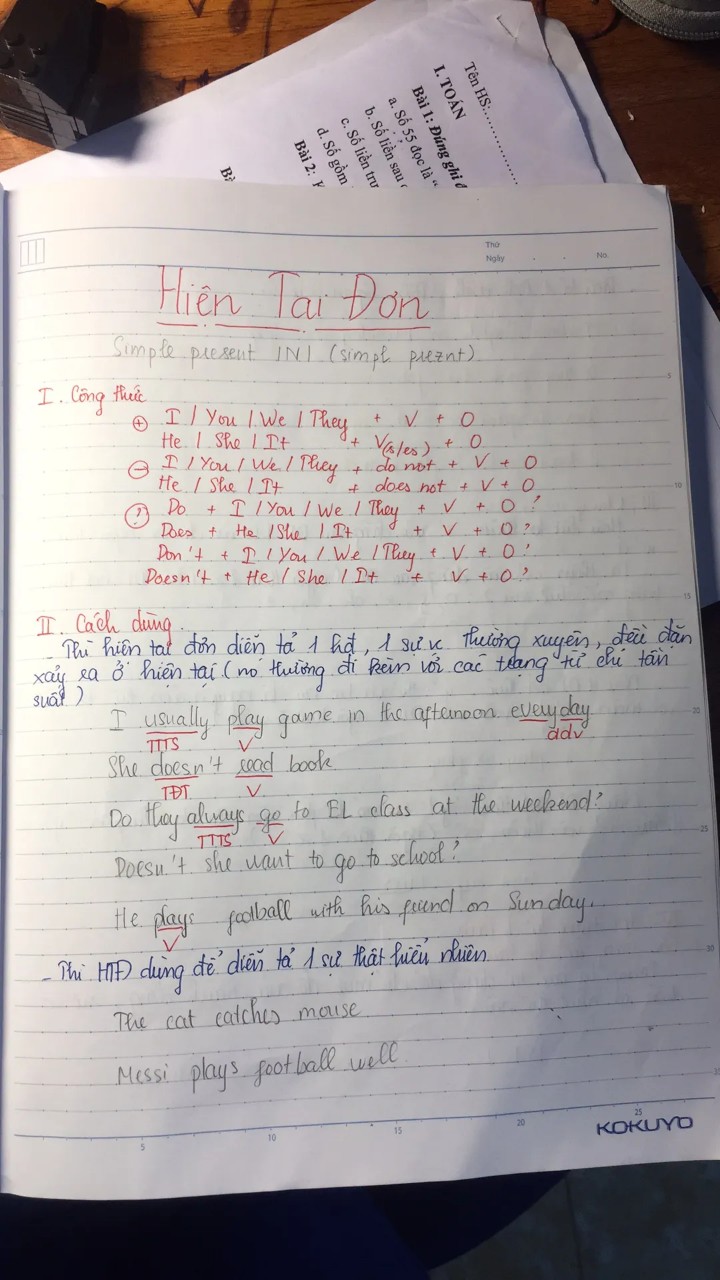 Tên HS:..................
I. TOÁN
Bài 1: Đúng ghi đ
a. Số 55 đọc là "
b. Số liền sau
c. Số liền trư
d. Số gồm
Bài 2:
Bà
Thứ
Ngày . . No.
Hiện Tại Đơn
Simple present |N| (simpl preznt)
I. Công thức
+ I / You / We / They + V + O
He / She / It + V(s/es) + O
- I / You / We / They + do not + V + O
He / She / It + does not + V + O
? Do + I / You / We / They + V + O?
Does + He / She / It + V + O?
Don't + I / You / We / They + V + O?
Doesn't + He / She / It + V + O?
II. Cách dùng.
- Thì hiện tại đơn diễn tả 1 hđ, 1 sự vc thường xuyên, đều đặn
xảy ra ở hiện tại (nó thường đi kèm với các trạng từ chỉ tần
suất)
I usually play game in the afternoon everyday
TTTS V adv
She doesn't read book
TĐT V
Do they always go to EL class at the weekend?
TTTS V
Doesn't she want to go to school?
He plays football with his friend on Sunday.
V
- Thì HTĐ dùng để diễn tả 1 sự thật hiểu nhiên
The cat catches mouse
Messi plays football well
5 10 15 20 25
KOKUYO